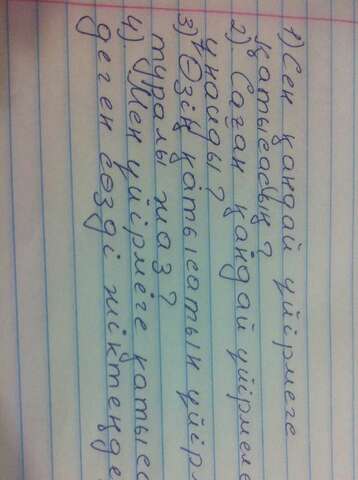 1) Сен қандай үйірмеге
қатысасың?
2) Саған қандай үйірмеле
ұнайды?
3) Өзің қатысатын үйірм
туралы жаз?
4). Мен үйірмеге қатысс
деген сөзді жіктеңде